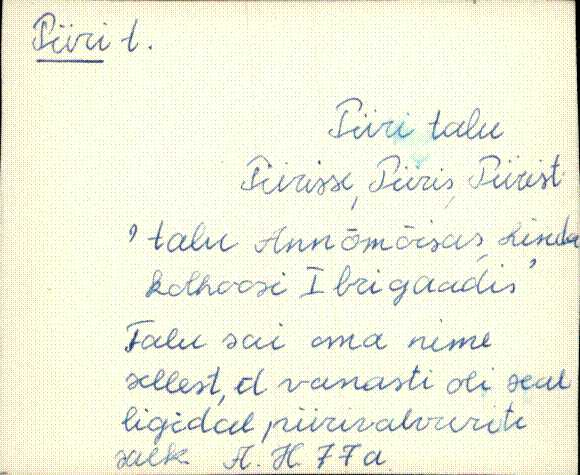 Piiri t.
Piiri talu
Piirisse, Piiris, Piirist
' talu Annõmõisas,
kolhoosi I brigaadis '
Talu sai oma nime
sellest, et vanasti oli seal
ligidal piirivalvurite
salk A. H. 77a